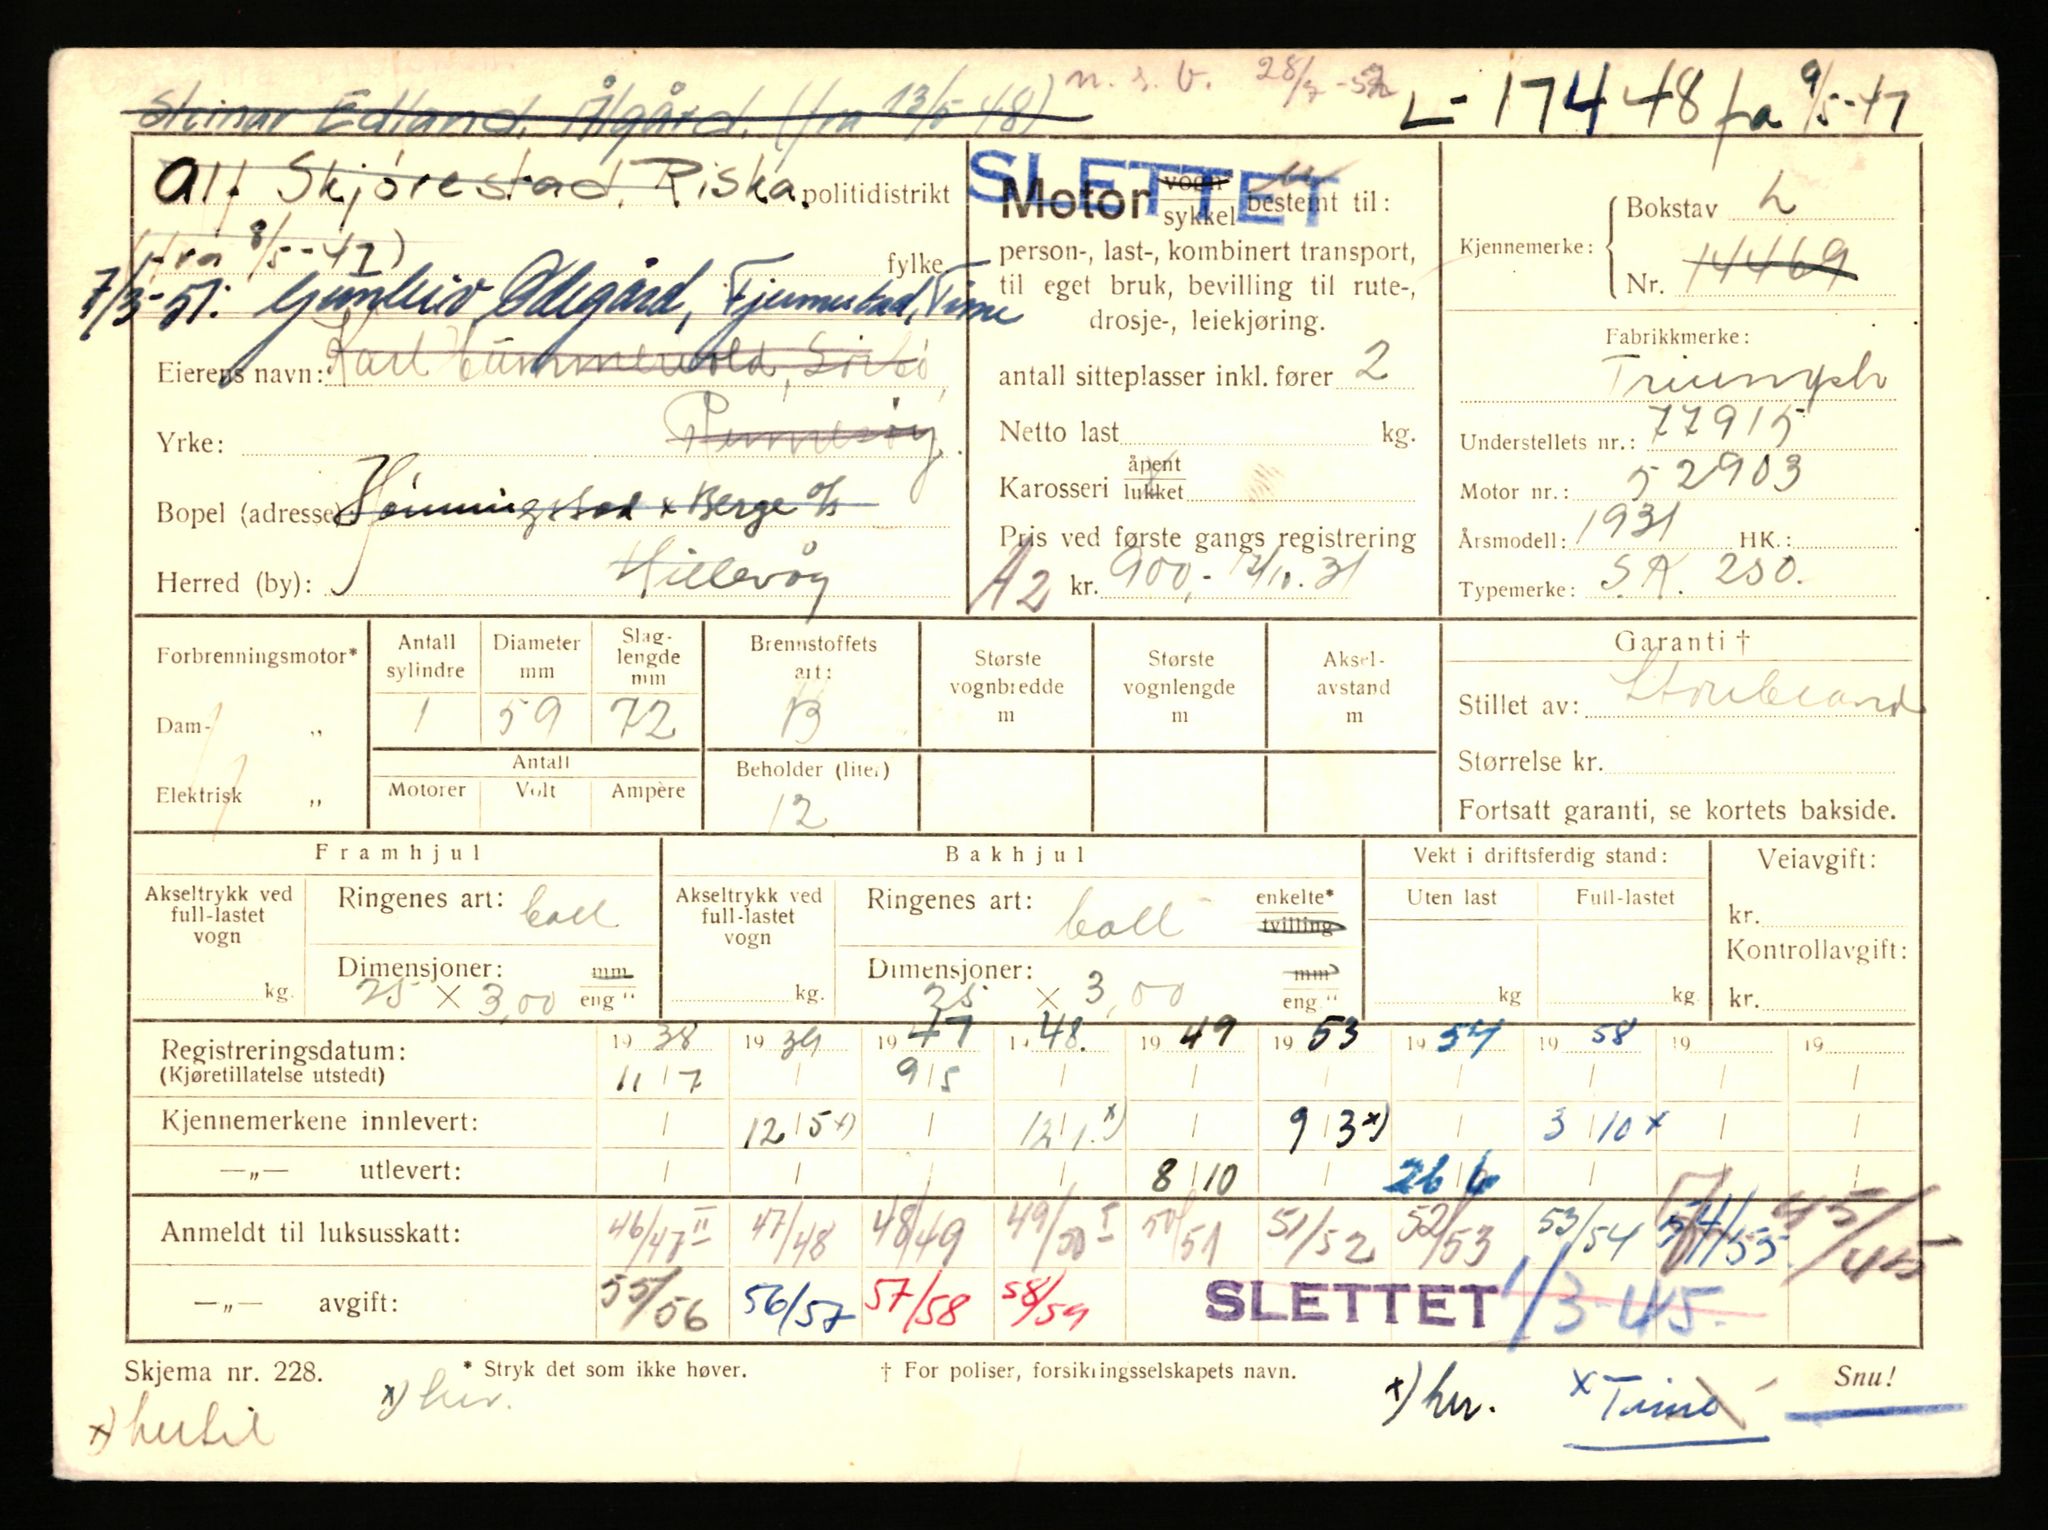 Steinar Edland, Ålgård. (fra 13/5 48) n. s. v. 28/7-52 L-17448 fra 9/5-47
Alf Skjørestad, Riska. politidistrikt
(fra 8/5-47) fylke
7/3-51: Gunleiv Ødegård, Fjermestad, Time
Eierens navn: Karl Hummervold, Sørbø,
Rennesøy
Yrke:
Bopel (adresse) Hønningstad x Berge a/s
Herred (by): Hillevåg
SLETTET
Motor vogn/sykkel bestemt til:
person-, last-, kombinert transport,
til eget bruk, bevilling til rute-,
drosje-, leiekjøring.
antall sitteplasser inkl. fører 2
Netto last kg.
Karosseri åpent/lukket
Pris ved første gangs registrering
A2 kr. 900,- 12/10. 31
Kjennemerke: Bokstav L
Nr. 14469
Fabrikkmerke:
Triumph
Understellets nr.: 77915
Motor nr.: 52903
Årsmodell: 1931 HK.:
Typemerke: S.A. 250.
Forbrenningsmotor* Antall sylindre Diameter mm Slag-lengde mm Brennstoffets art: Største vognbredde m Største vognlengde m Aksel-avstand m
Dam- „ 1 59 72 B
Antall Beholder (liter)
Elektrisk „ Motorer Volt Ampère 12
Garanti †
Stillet av: Storebrand
Størrelse kr.
Fortsatt garanti, se kortets bakside.
Framhjul Bakhjul Vekt i driftsferdig stand: Veiavgift:
Akseltrykk ved full-lastet vogn kg. Ringenes art: ball
Dimensjoner: 25 x 3,00 mm/eng "
Akseltrykk ved full-lastet vogn kg. Ringenes art: ball enkelte*/tvilling
Dimensjoner: 25 x 3,00 mm/eng "
Uten last kg Full-lastet kg.
kr.
Kontrollavgift:
kr.
Registreringsdatum: 1938 1939 1947 1948. 1949 1953 1954 1958 19 19
(Kjøretillatelse utstedt) 11 7 9 5
Kjennemerkene innlevert: 12 5 x) 12 1. x) 9 3 x) 3 10 x
—„— utlevert: 8 10 26 6
Anmeldt til luksusskatt: 46/47 II 47/48 48/49 49/50 I 50/51 51/52 52/53 53/54 54/55 45/45
—„— avgift: 55/56 56/57 57/58 58/59 SLETTET 1/3-45.
Skjema nr. 228. * Stryk det som ikke høver. † For poliser, forsikringsselskapets navn. Snu!
x) her. x) her. x Time